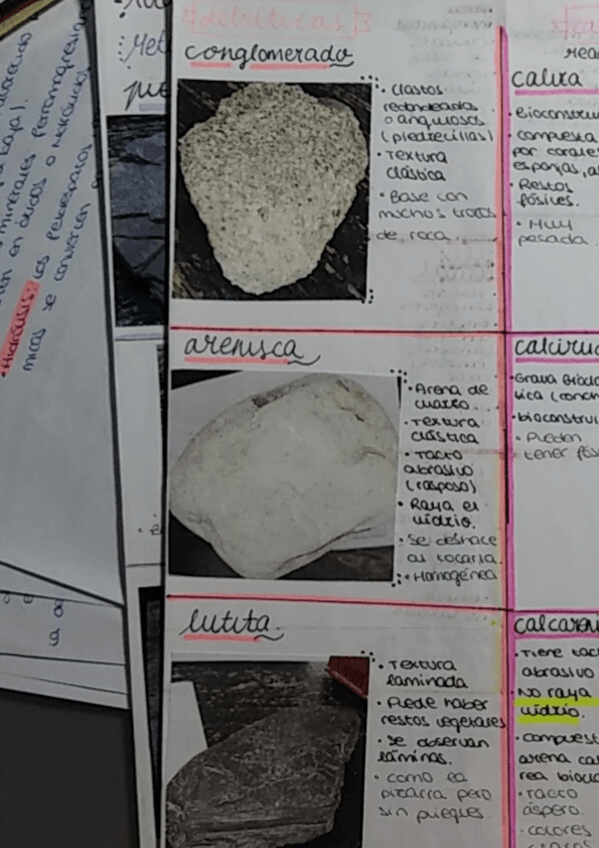 detríticas
conglomerado
• Clastos
redondeados
o angulosos
(piedrecillas)
• Textura
clástica
• Base con
muchos trozos
de roca
arenisca
• Arena de
cuarzo.
• Textura
clástica
• Tacto
abrasivo
(rasposo)
• Raya el
vidrio.
• Se deshace
al tocarla.
• Homogénea
lutita.
• Textura
laminada
• Puede haber
restos vegetales
• Se observan
láminas.
• como la
pizarra pero
sin pliegues.
caliza
• Bioconstru
• compuesta
por corale
esponjas, a
• Restos
fósiles.
• Muy
pesada
calciru
• Grava bioclá
tica (conch
• bioconstru
• Pueden
tener fós
calcaren
• Tiene tact
abrasivo
• No raya
vidrio.
• compuest
arena cal
rea biocla
• Tacto
áspero.
• colores
• Hidrólisis: los feldespatos
micas se convierten
en óxidos o
minerales ferromagnesian